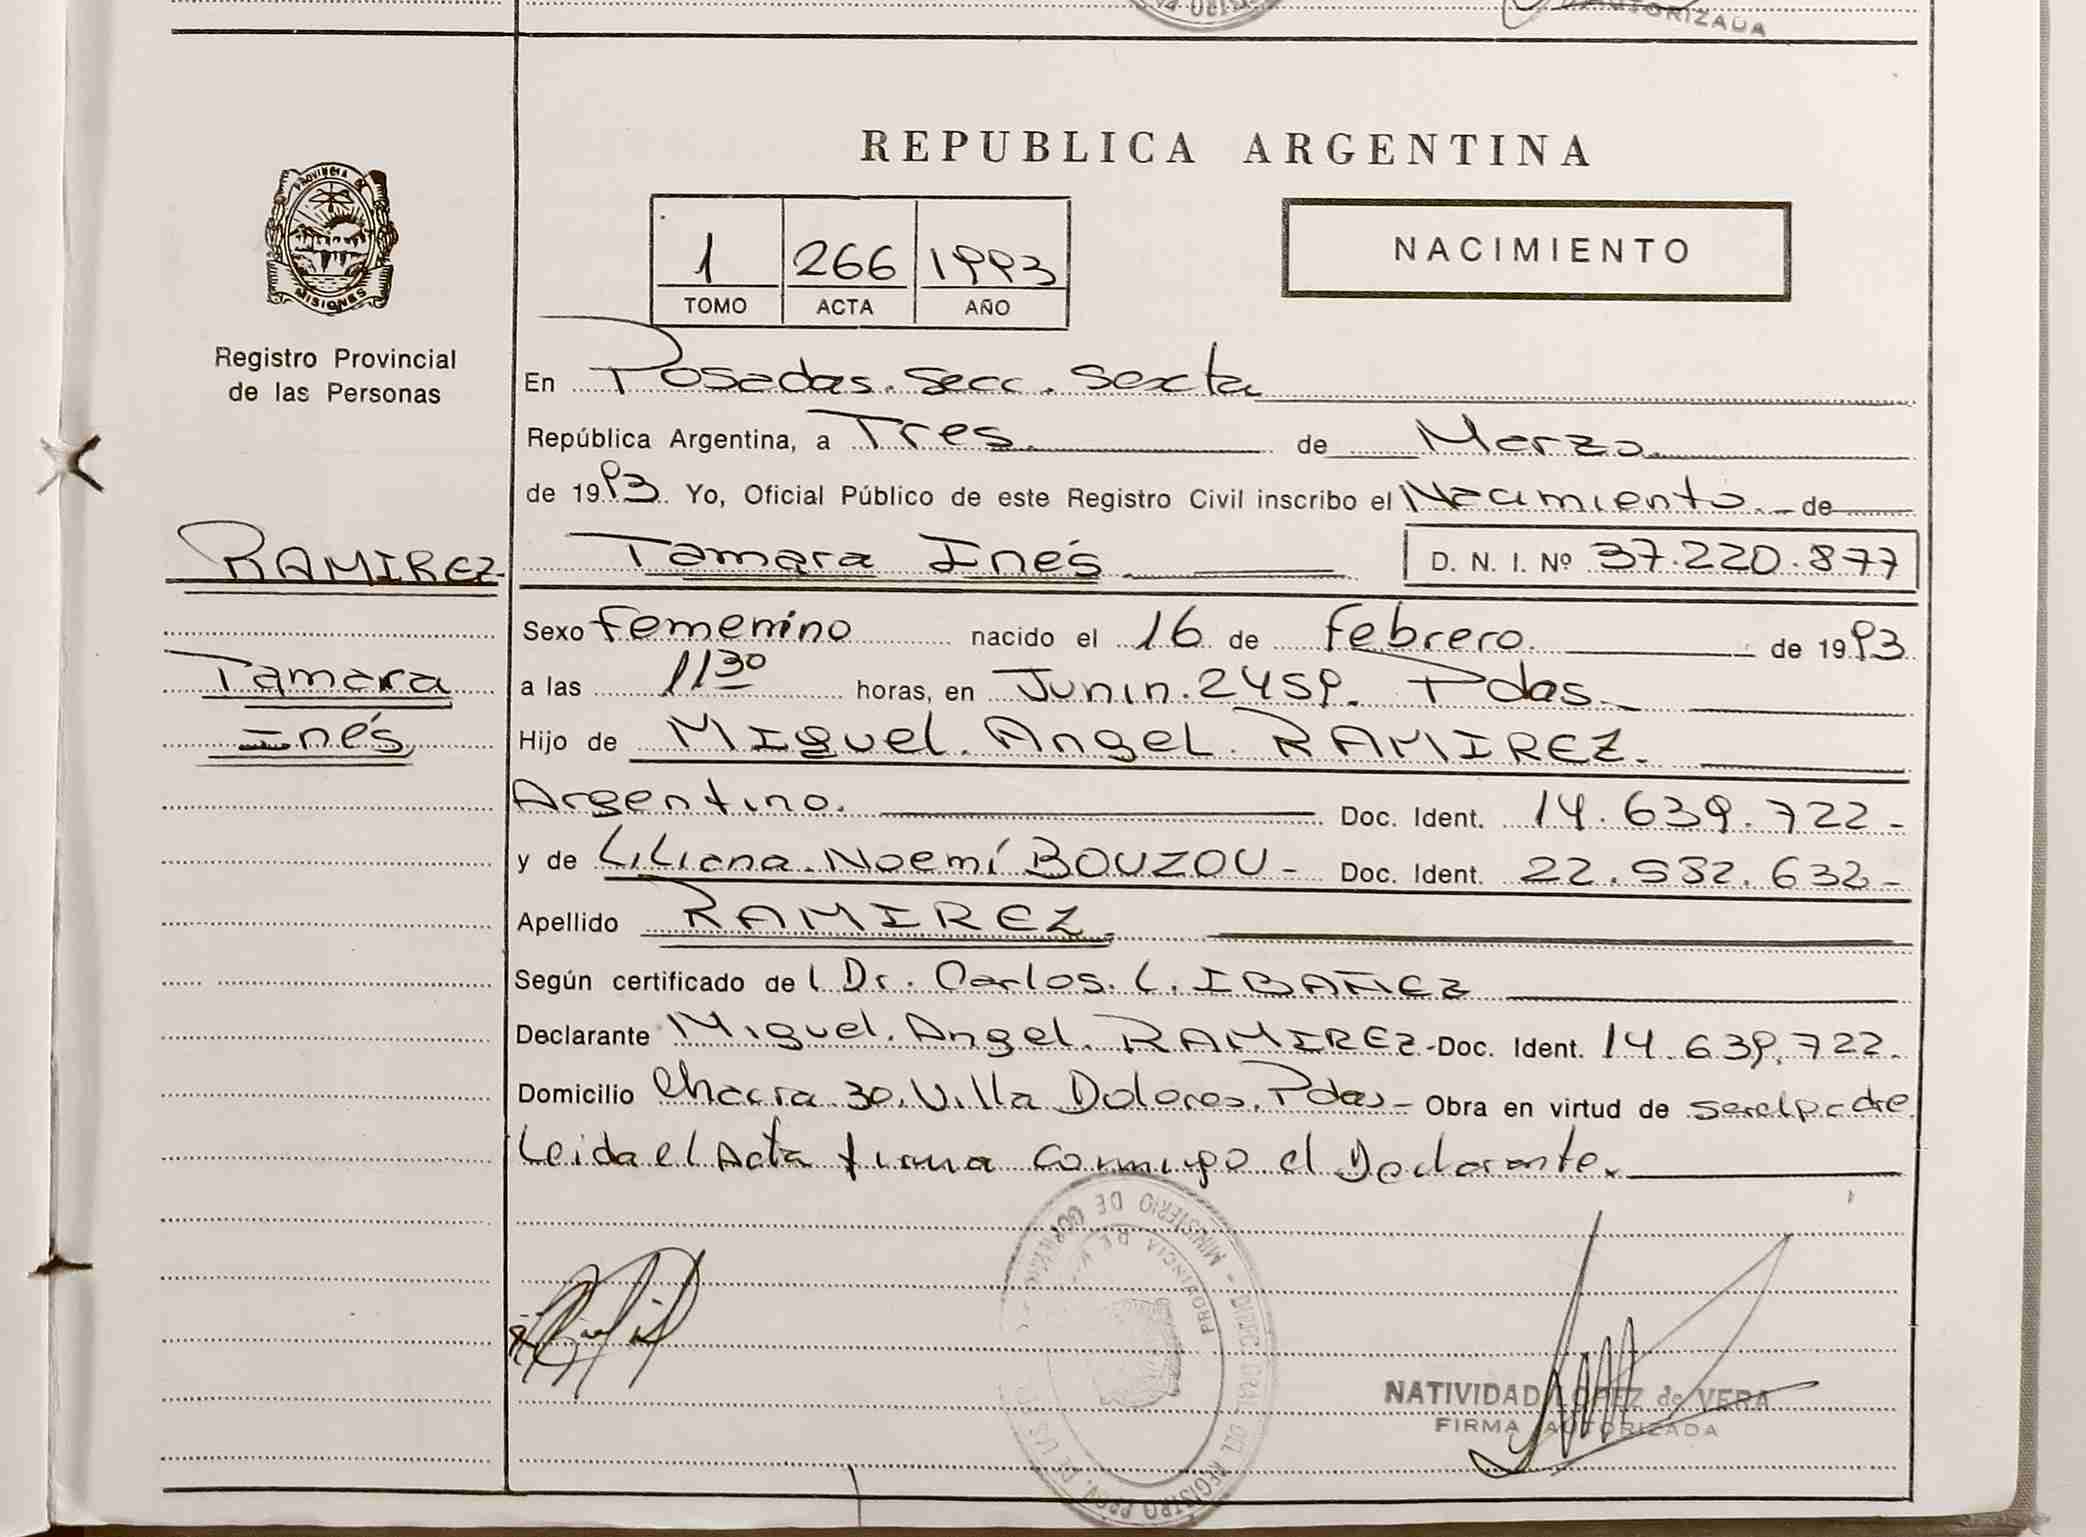 AUTORIZADA
PROVINCIA DE
MISIONES
Registro Provincial
de las Personas
RAMIREZ
Tamara
Inés
REPUBLICA ARGENTINA
1 266 1993
TOMO ACTA AÑO
NACIMIENTO
En Posadas. Secc. Sexta
República Argentina, a Tres de Marzo
de 1993. Yo, Oficial Público de este Registro Civil inscribo el Nacimiento de
Tamara Inés D. N. I. Nº 37.220.877
Sexo femenino nacido el 16 de febrero de 1993
a las 11 30 horas, en Junin. 2459. Pdas.
Hijo de Miguel. Angel. RAMIREZ.
Argentino. Doc. Ident. 14.639.722-
y de Liliana. Noemí BOUZOU- Doc. Ident. 22.532.632-
Apellido RAMIREZ.
Según certificado de l Dr. Carlos. L. IBAÑEZ
Declarante Miguel. Angel. RAMIREZ-Doc. Ident. 14.639.722.
Domicilio Chacra 30. Villa Dolores. Pdas- Obra en virtud de ser el padre
Leida el Acta firma conmigo el Declarante.
MINISTERIO DE GOBIERNO - DIREC. GRAL. DEL REGISTRO PROV. DE LAS
PROVINCIA DE
NATIVIDAD LOPEZ de VERA
FIRMA AUTORIZADA